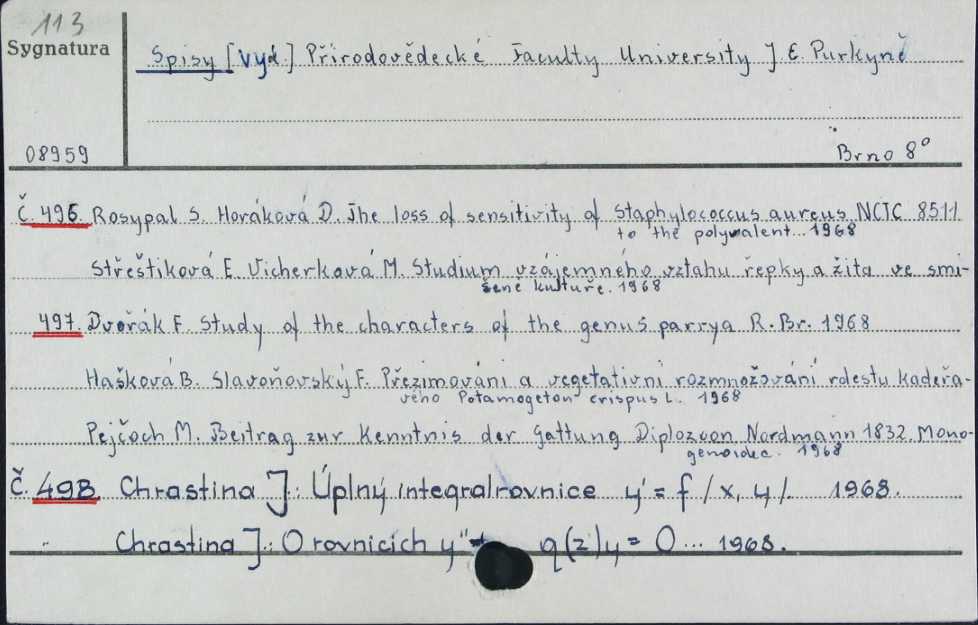 113
Sygnatura
Spisy [vyd.] Přírodovědecké Faculty University J. E. Purkyně
08959
Brno 8°
Č. 496. Rosypal S. Horáková D. The loss of sensitivity of Staphylococcus aureus NCTC 8511
to the polyvalent... 1968
Střeštíková E. Vicherková M. Studium vzájemného vztahu řepky a žita ve smí-
šené kultuře. 1968
497. Dvořák F. Study of the characters of the genus parrya R. Br. 1968
Hašková B. Slavoňovský F. Přezimování a vegetativní rozmnožování rdestu kadeřa-
vého Potamogeton crispus L. 1968
Pejčoch M. Beitrag zur Kenntnis der Gattung Diplozoon Nordmann 1832. Mono-
genoidea. 1968
Č. 498 Chrastina J.: Úplný integralrovnice y' = f /x, y/. 1968.
„ Chrastina J.: O rovnicích y" + q(z)y = 0 ... 1968.